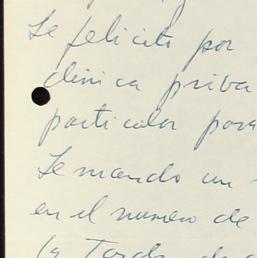 Le felicito por
clinica priva
particular para
Le mando un
en el numero de
la Tarde de